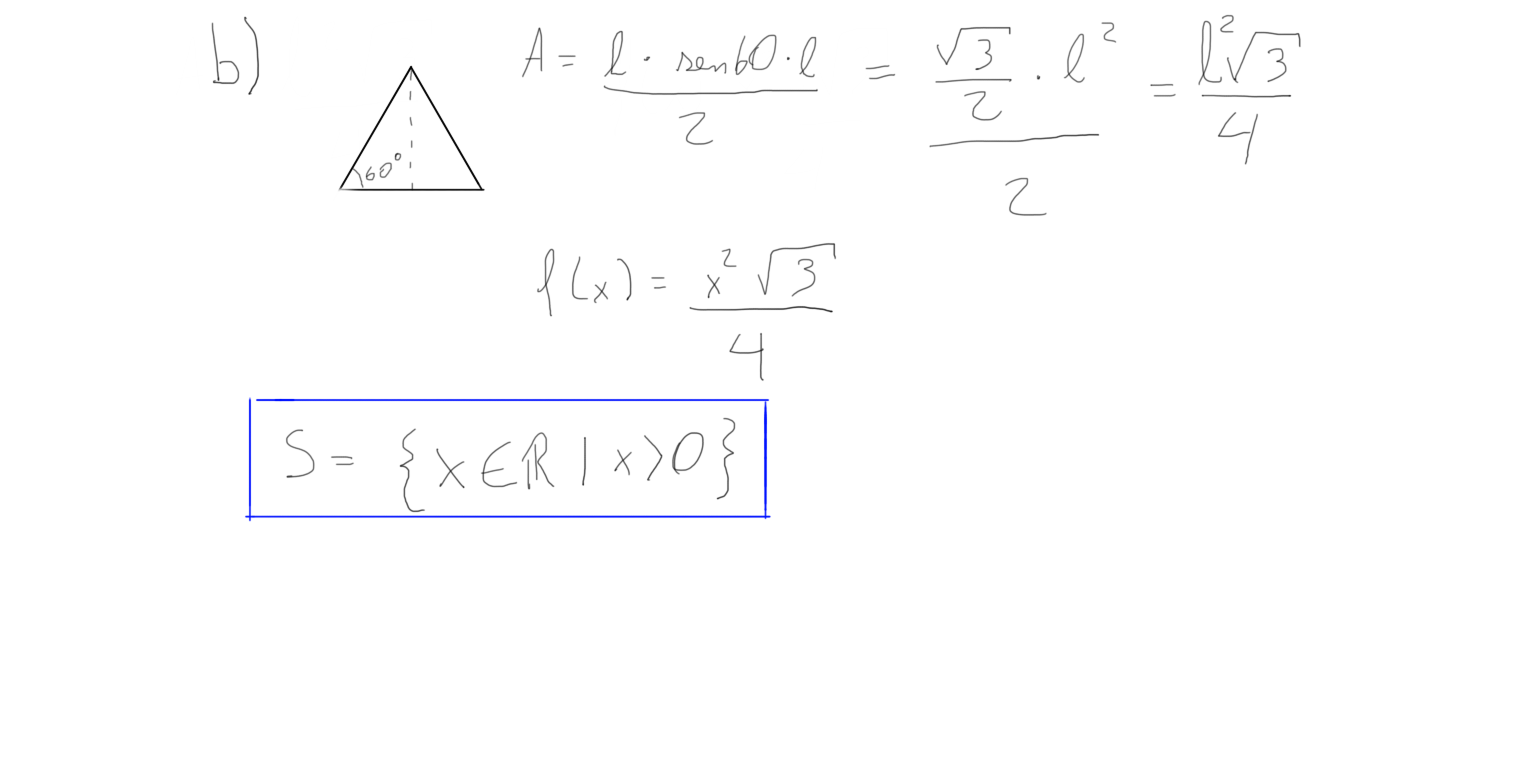 b)
60°
A = l · sen60 · l / 2 = √3/2 · l² / 2 = l²√3 / 4
f(x) = x²√3 / 4
S = {x ∈ ℝ | x > 0}